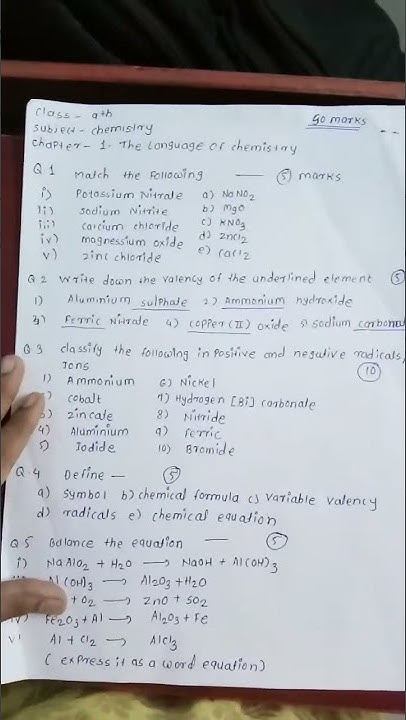 Class - 9th
50 marks
Subject - chemistry
Chapter - 1. The Language of chemistry
Q 1 Match the following — (5) marks
i) Potassium Nitrate a) NaNO2
ii) Sodium Nitrite b) MgO
iii) calcium chloride c) KNO3
iv) magnessium oxide d) ZnCl2
v) zinc chloride e) CaCl2
Q 2 Write down the valency of the underlined element (5)
1) Aluminium sulphate 2) Ammonium hydroxide
3) Ferric Nitrate 4) Copper (II) oxide 5) sodium carbonat
Q 3 classify the following in positive and negative radicals/
Ions (10)
1) Ammonium 6) Nickel
cobalt 7) Hydrogen [Bi] carbonate
3) zincate 8) Nitride
4) Aluminium 9) Ferric
5) Iodide 10) Bromide
Q.4 Define — (5)
a) symbol b) chemical formula c) variable valency
d) radicals e) chemical equation
Q 5 Balance the equation — (5)
i) NaAlO2 + H2O → NaOH + Al(OH)3
Al(OH)3 → Al2O3 + H2O
+ O2 → ZnO + SO2
iv) Fe2O3 + Al → Al2O3 + Fe
v) Al + Cl2 → AlCl3
( express it as a word equation)